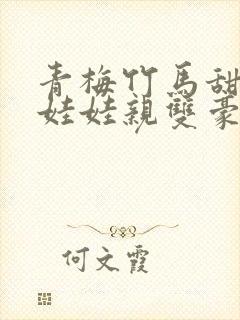 青梅竹馬甜
娃娃親雙豪
何文霞